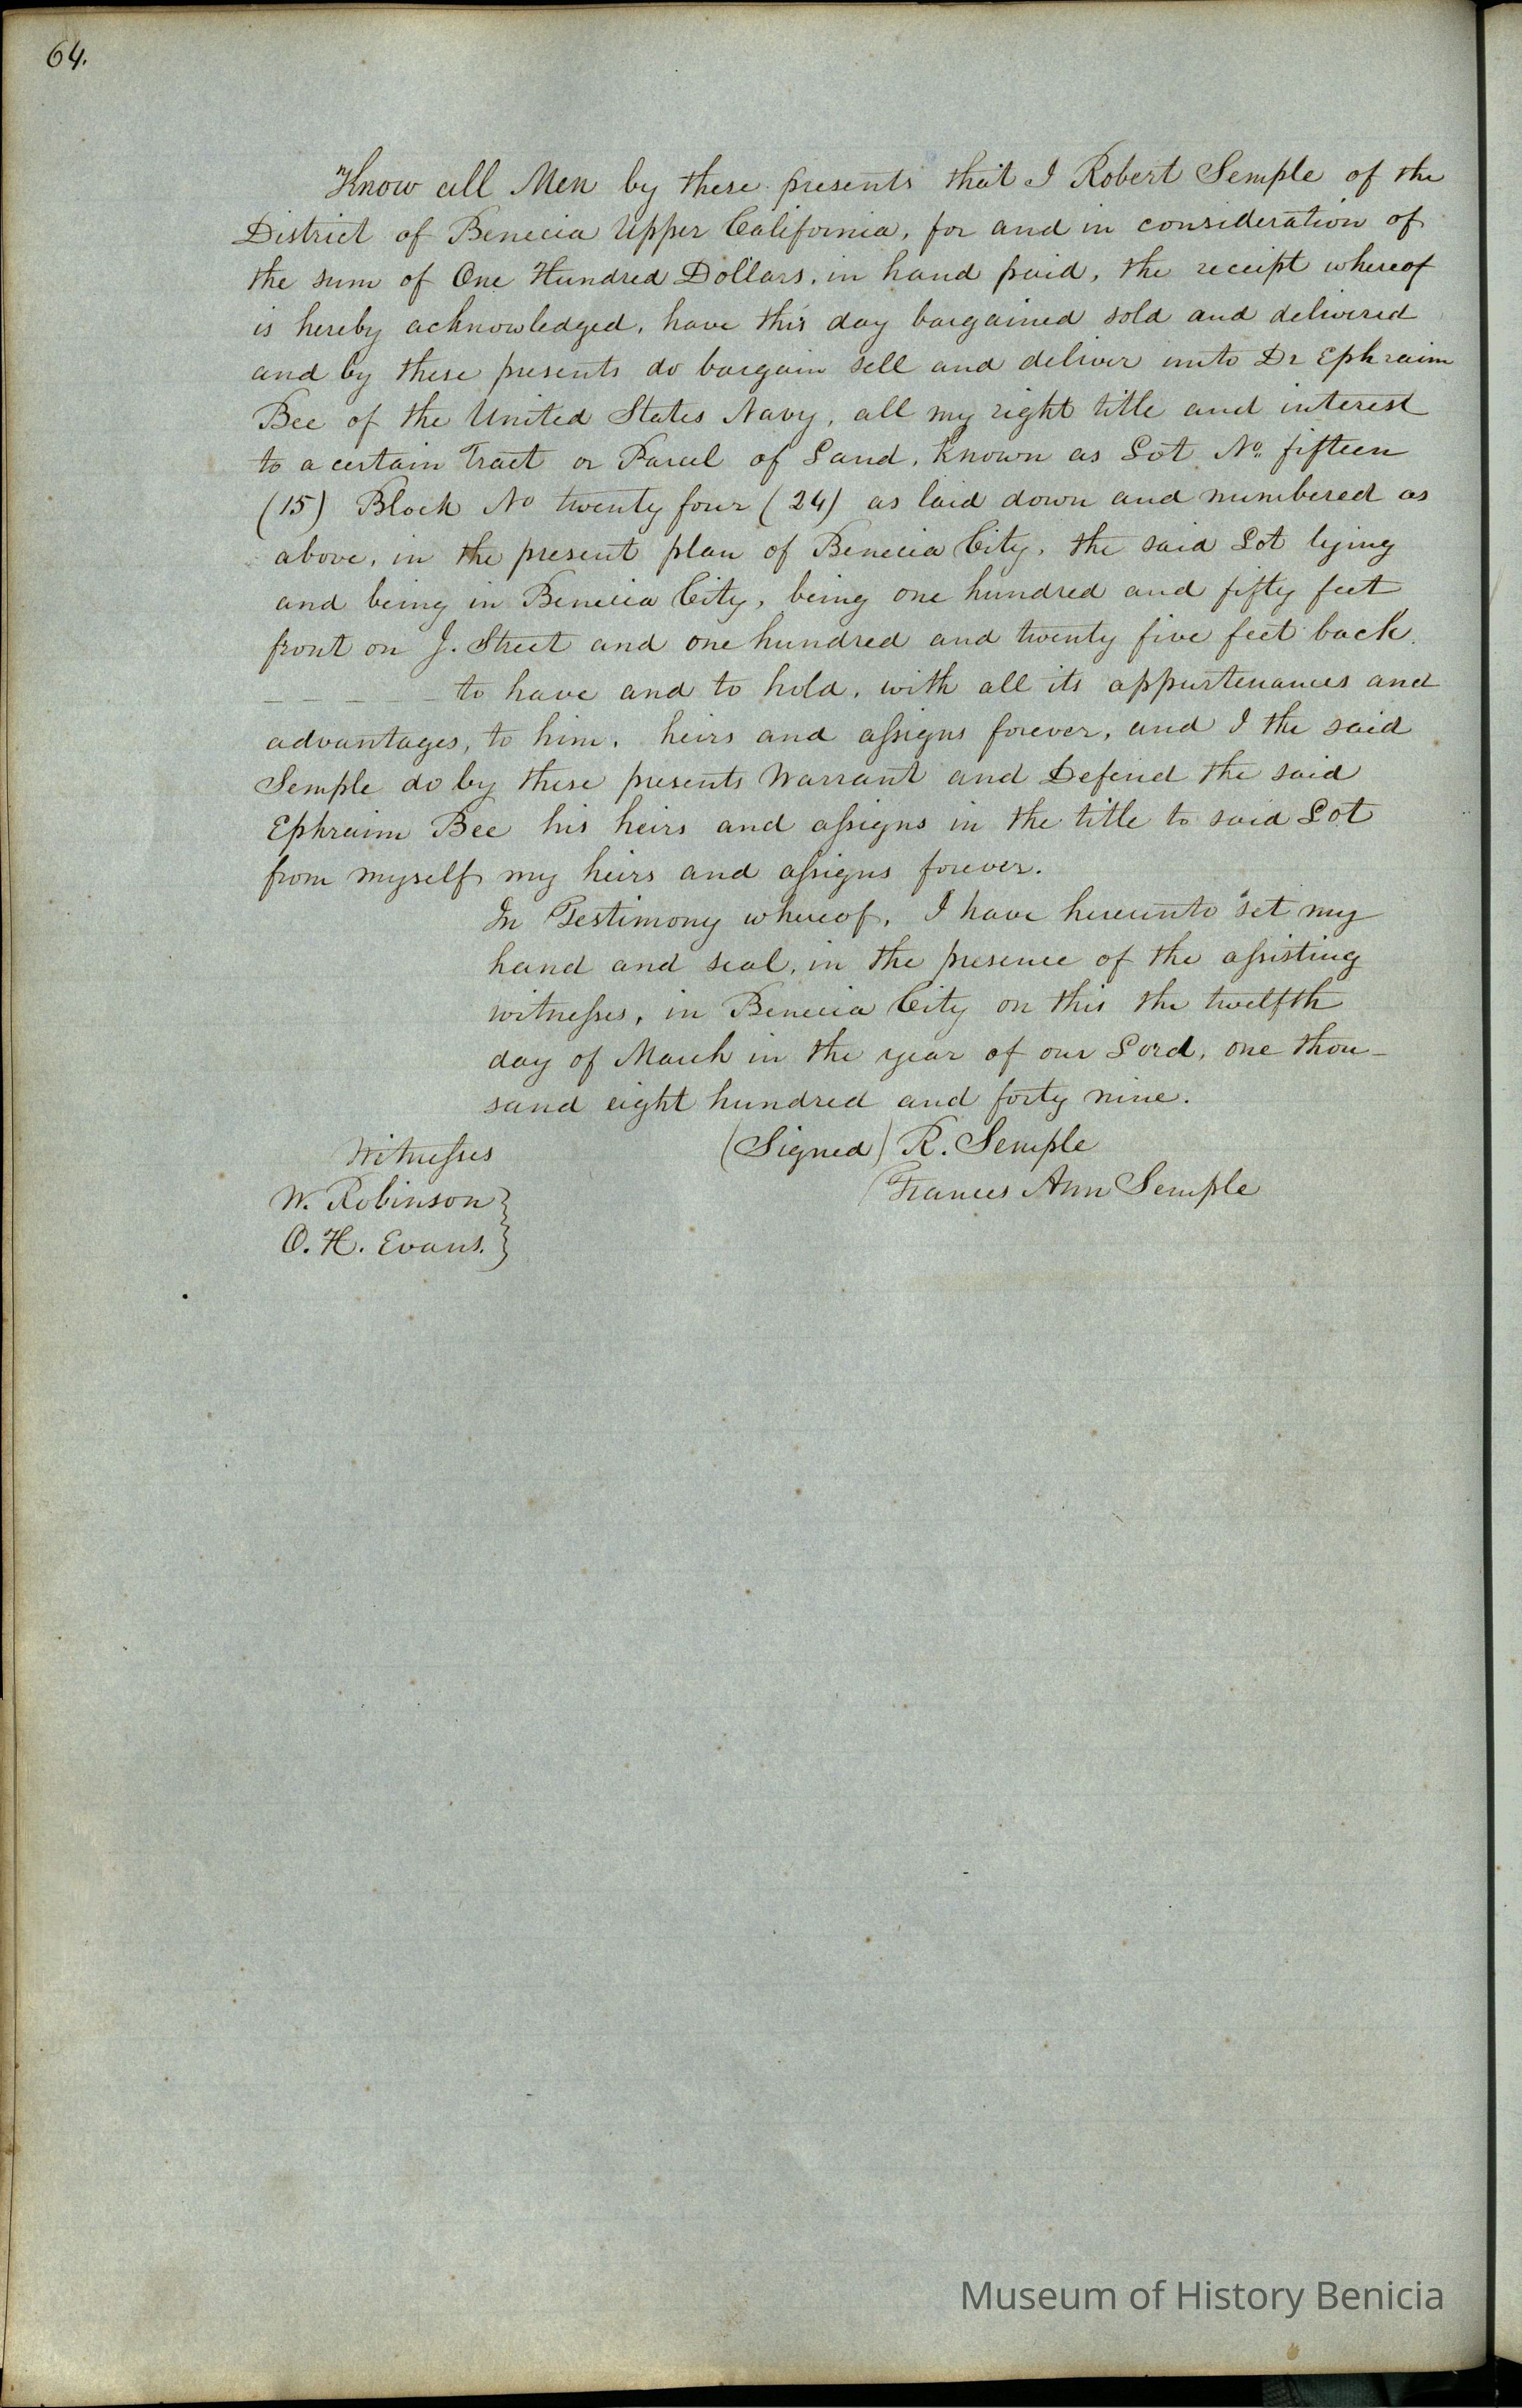 64.
Know all Men by these presents that I Robert Semple of the
District of Benicia Upper California, for and in consideration of
the sum of One Hundred Dollars, in hand paid, the receipt whereof
is hereby acknowledged, have this day bargained sold and delivered
and by these presents do bargain sell and deliver unto Dr Ephraim
Bee of the United States Navy, all my right title and interest
to a certain Tract or Parcel of Land, Known as Lot No. fifteen
(15) Block No twenty four (24) as laid down and numbered as
above, in the present plan of Benicia City, the said Lot lying
and being in Benicia City, being one hundred and fifty feet
front on J. Street and one hundred and twenty five feet back.
_ _ _ _ to have and to hold, with all its appurtenances and
advantages, to him, heirs and aſsigns forever, and I the said
Semple do by these presents Warrant and Defend the said
Ephraim Bee his heirs and aſsigns in the title to said Lot
from myself my heirs and aſsigns forever.
In Testimony whereof, I have hereunto set my
hand and seal, in the presence of the aſsisting
witneſses, in Benicia City on this the twelfth
day of March in the year of our Lord, one thou-
sand eight hundred and forty nine.
(Signed) R. Semple
Frances Ann Semple
Witneſses
W. Robinson
O. H. Evans.
Museum of History Benicia